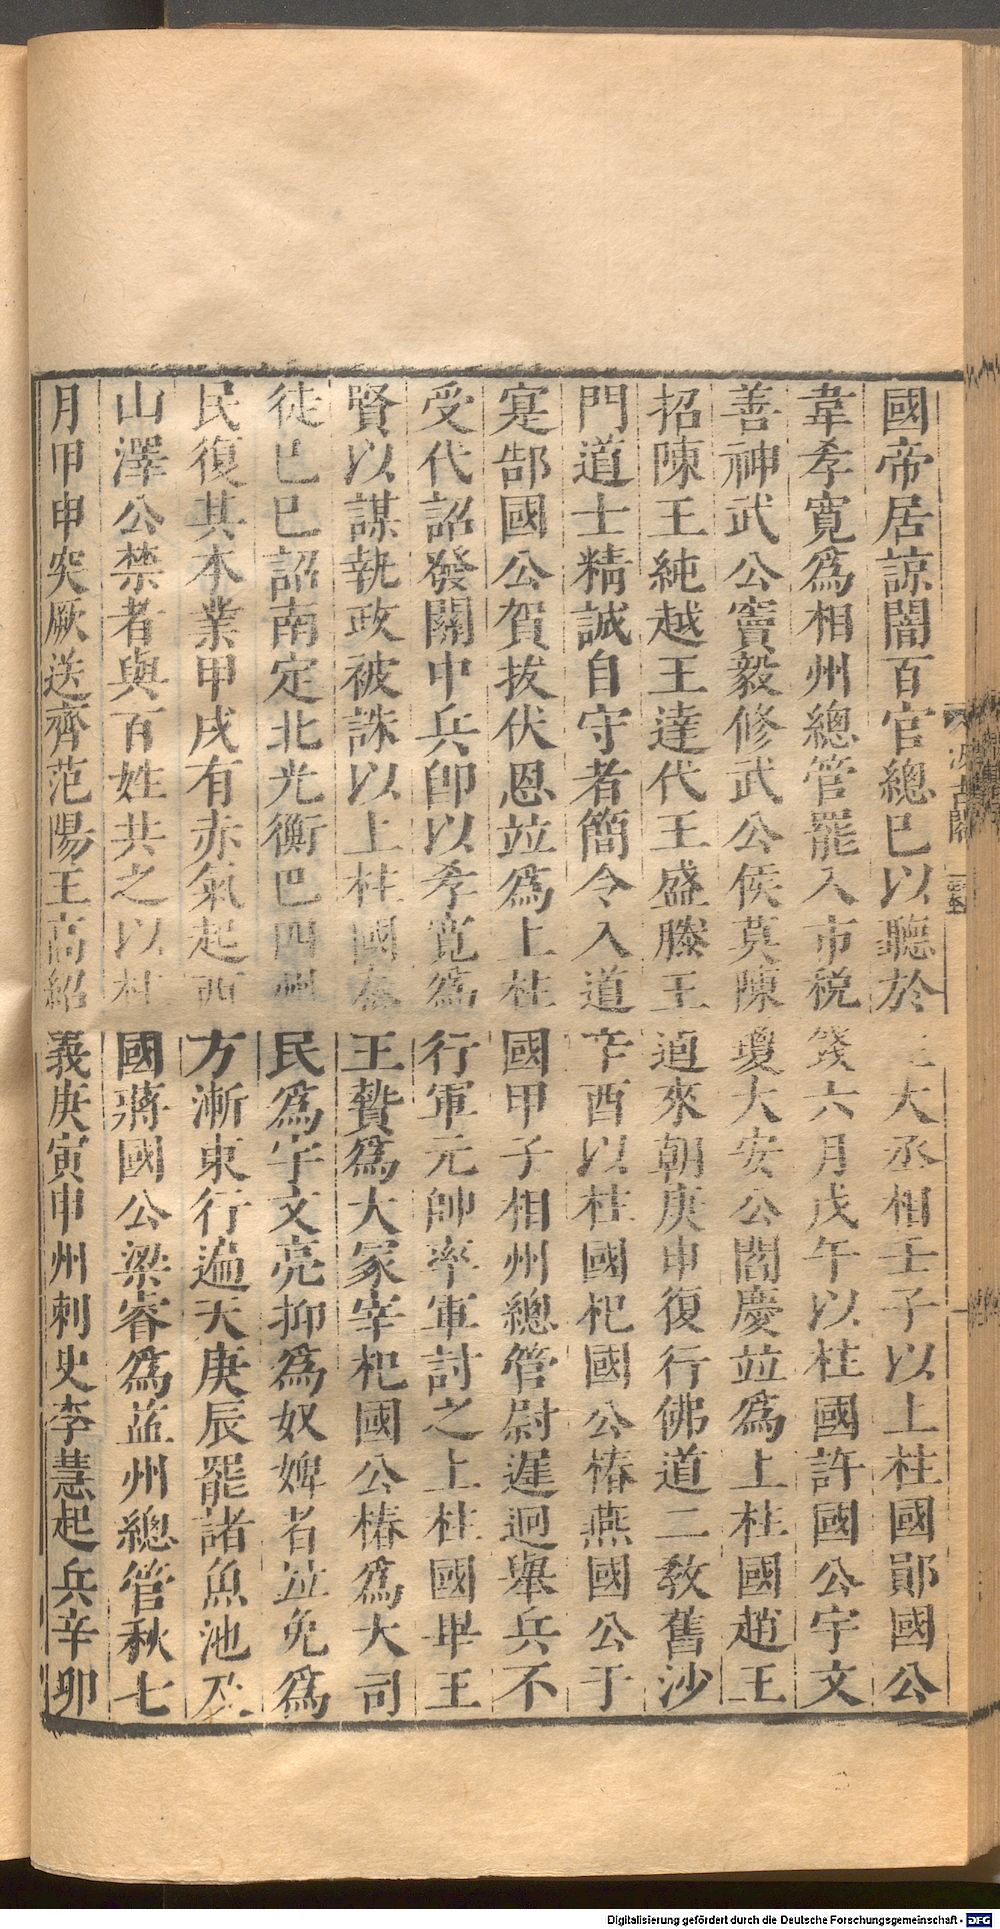 國帝居諒闇百官總巳以聽於左大丞相壬子以上柱國鄖國公
韋孝寬爲相州總管罷入市稅錢六月戊午以柱國許國公宇文
善神武公竇毅修武公侯莫陳瓊大安公閻慶竝爲上柱國趙王
招陳王純越王達代王盛滕王逌來朝庚申復行佛道二教舊沙
門道士精誠自守者簡令入道辛酉以柱國杞國公椿燕國公于
寔郜國公賀拔伏恩竝爲上柱國甲子相州總管尉遲迥舉兵不
受代詔發關中兵卽以孝寬爲行軍元帥率軍討之上柱國畢王
賢以謀執政被誅以上柱國秦王贄爲大冢宰杞國公椿爲大司
徒巳巳詔南定北光衡巴四州民爲宇文亮抑爲奴婢者竝免爲
民復其本業甲戌有赤氣起西方漸東行遍天庚辰罷諸魚池及
山澤公禁者與百姓共之以柱國蔣國公梁睿爲益州總管秋七
月甲申突厥送齊范陽王高紹義庚寅申州刺史李慧起兵辛卯
汲古閣
Digitalisierung gefördert durch die Deutsche Forschungsgemeinschaft - DFG